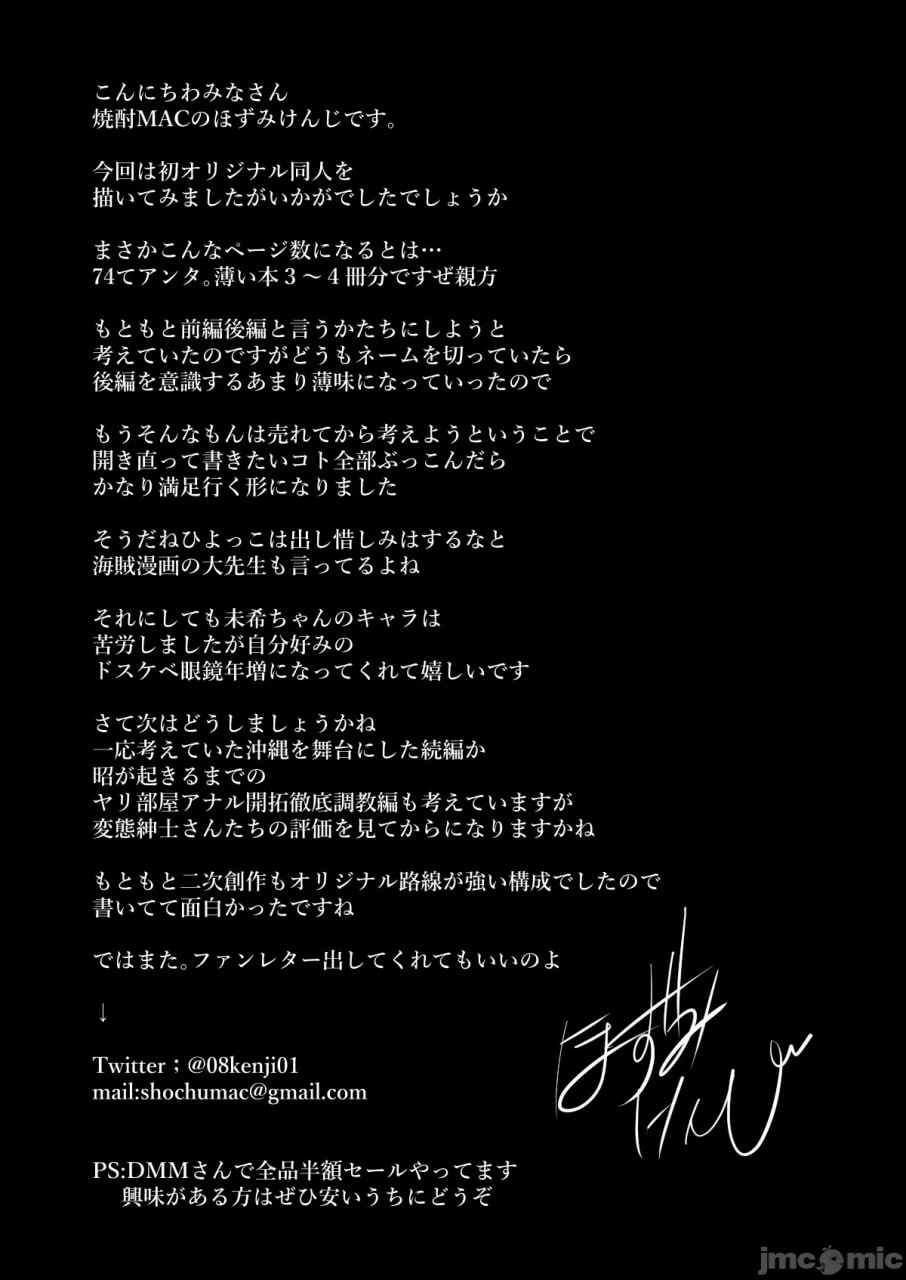 こんにちわみなさん
焼酎MACのほずみけんじです。
今回は初オリジナル同人を
描いてみましたがいかがでしたでしょうか
まさかこんなページ数になるとは…
74てアンタ。薄い本３～４冊分ですぜ親方
もともと前編後編と言うかたちにしようと
考えていたのですがどうもネームを切っていたら
後編を意識するあまり薄味になっていったので
もうそんなもんは売れてから考えようということで
開き直って書きたいコト全部ぶっこんだら
かなり満足行く形になりました
そうだねひよっこは出し惜しみはするなと
海賊漫画の大先生も言ってるよね
それにしても未希ちゃんのキャラは
苦労しましたが自分好みの
ドスケベ眼鏡年増になってくれて嬉しいです
さて次はどうしましょうかね
一応考えていた沖縄を舞台にした続編か
昭が起きるまでの
ヤリ部屋アナル開拓徹底調教編も考えていますが
変態紳士さんたちの評価を見てからになりますかね
もともと二次創作もオリジナル路線が強い構成でしたので
書いてて面白かったですね
ではまた。ファンレター出してくれてもいいのよ
↓
Twitter；@08kenji01
mail:shochumac@gmail.com
ほずみ
けんじ
PS:DMMさんで全品半額セールやってます
興味がある方はぜひ安いうちにどうぞ
jmcomic